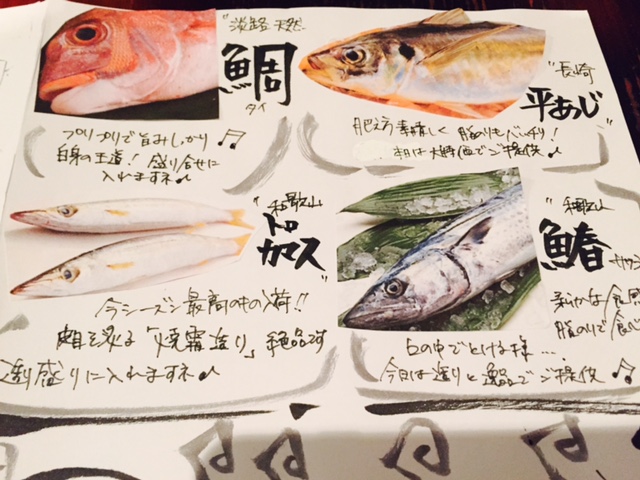 淡路 天然
鯛
タイ
プリプリで旨みしっかり
白身の王道！ 盛り合せに
入れますネ♪
長崎
平あじ
肥え方 素晴しく 脂のりもバッチリ！
和歌山
トロ
カマス
今シーズン最高のもの入荷!!
皮目を炙る「焼霜造り」絶品です
造り盛りに入れますネ♪
和歌山
鰆
サワラ
柔らかな食
脂のりで
口の中でとける様…
今日は造りと逸品でご提供♪